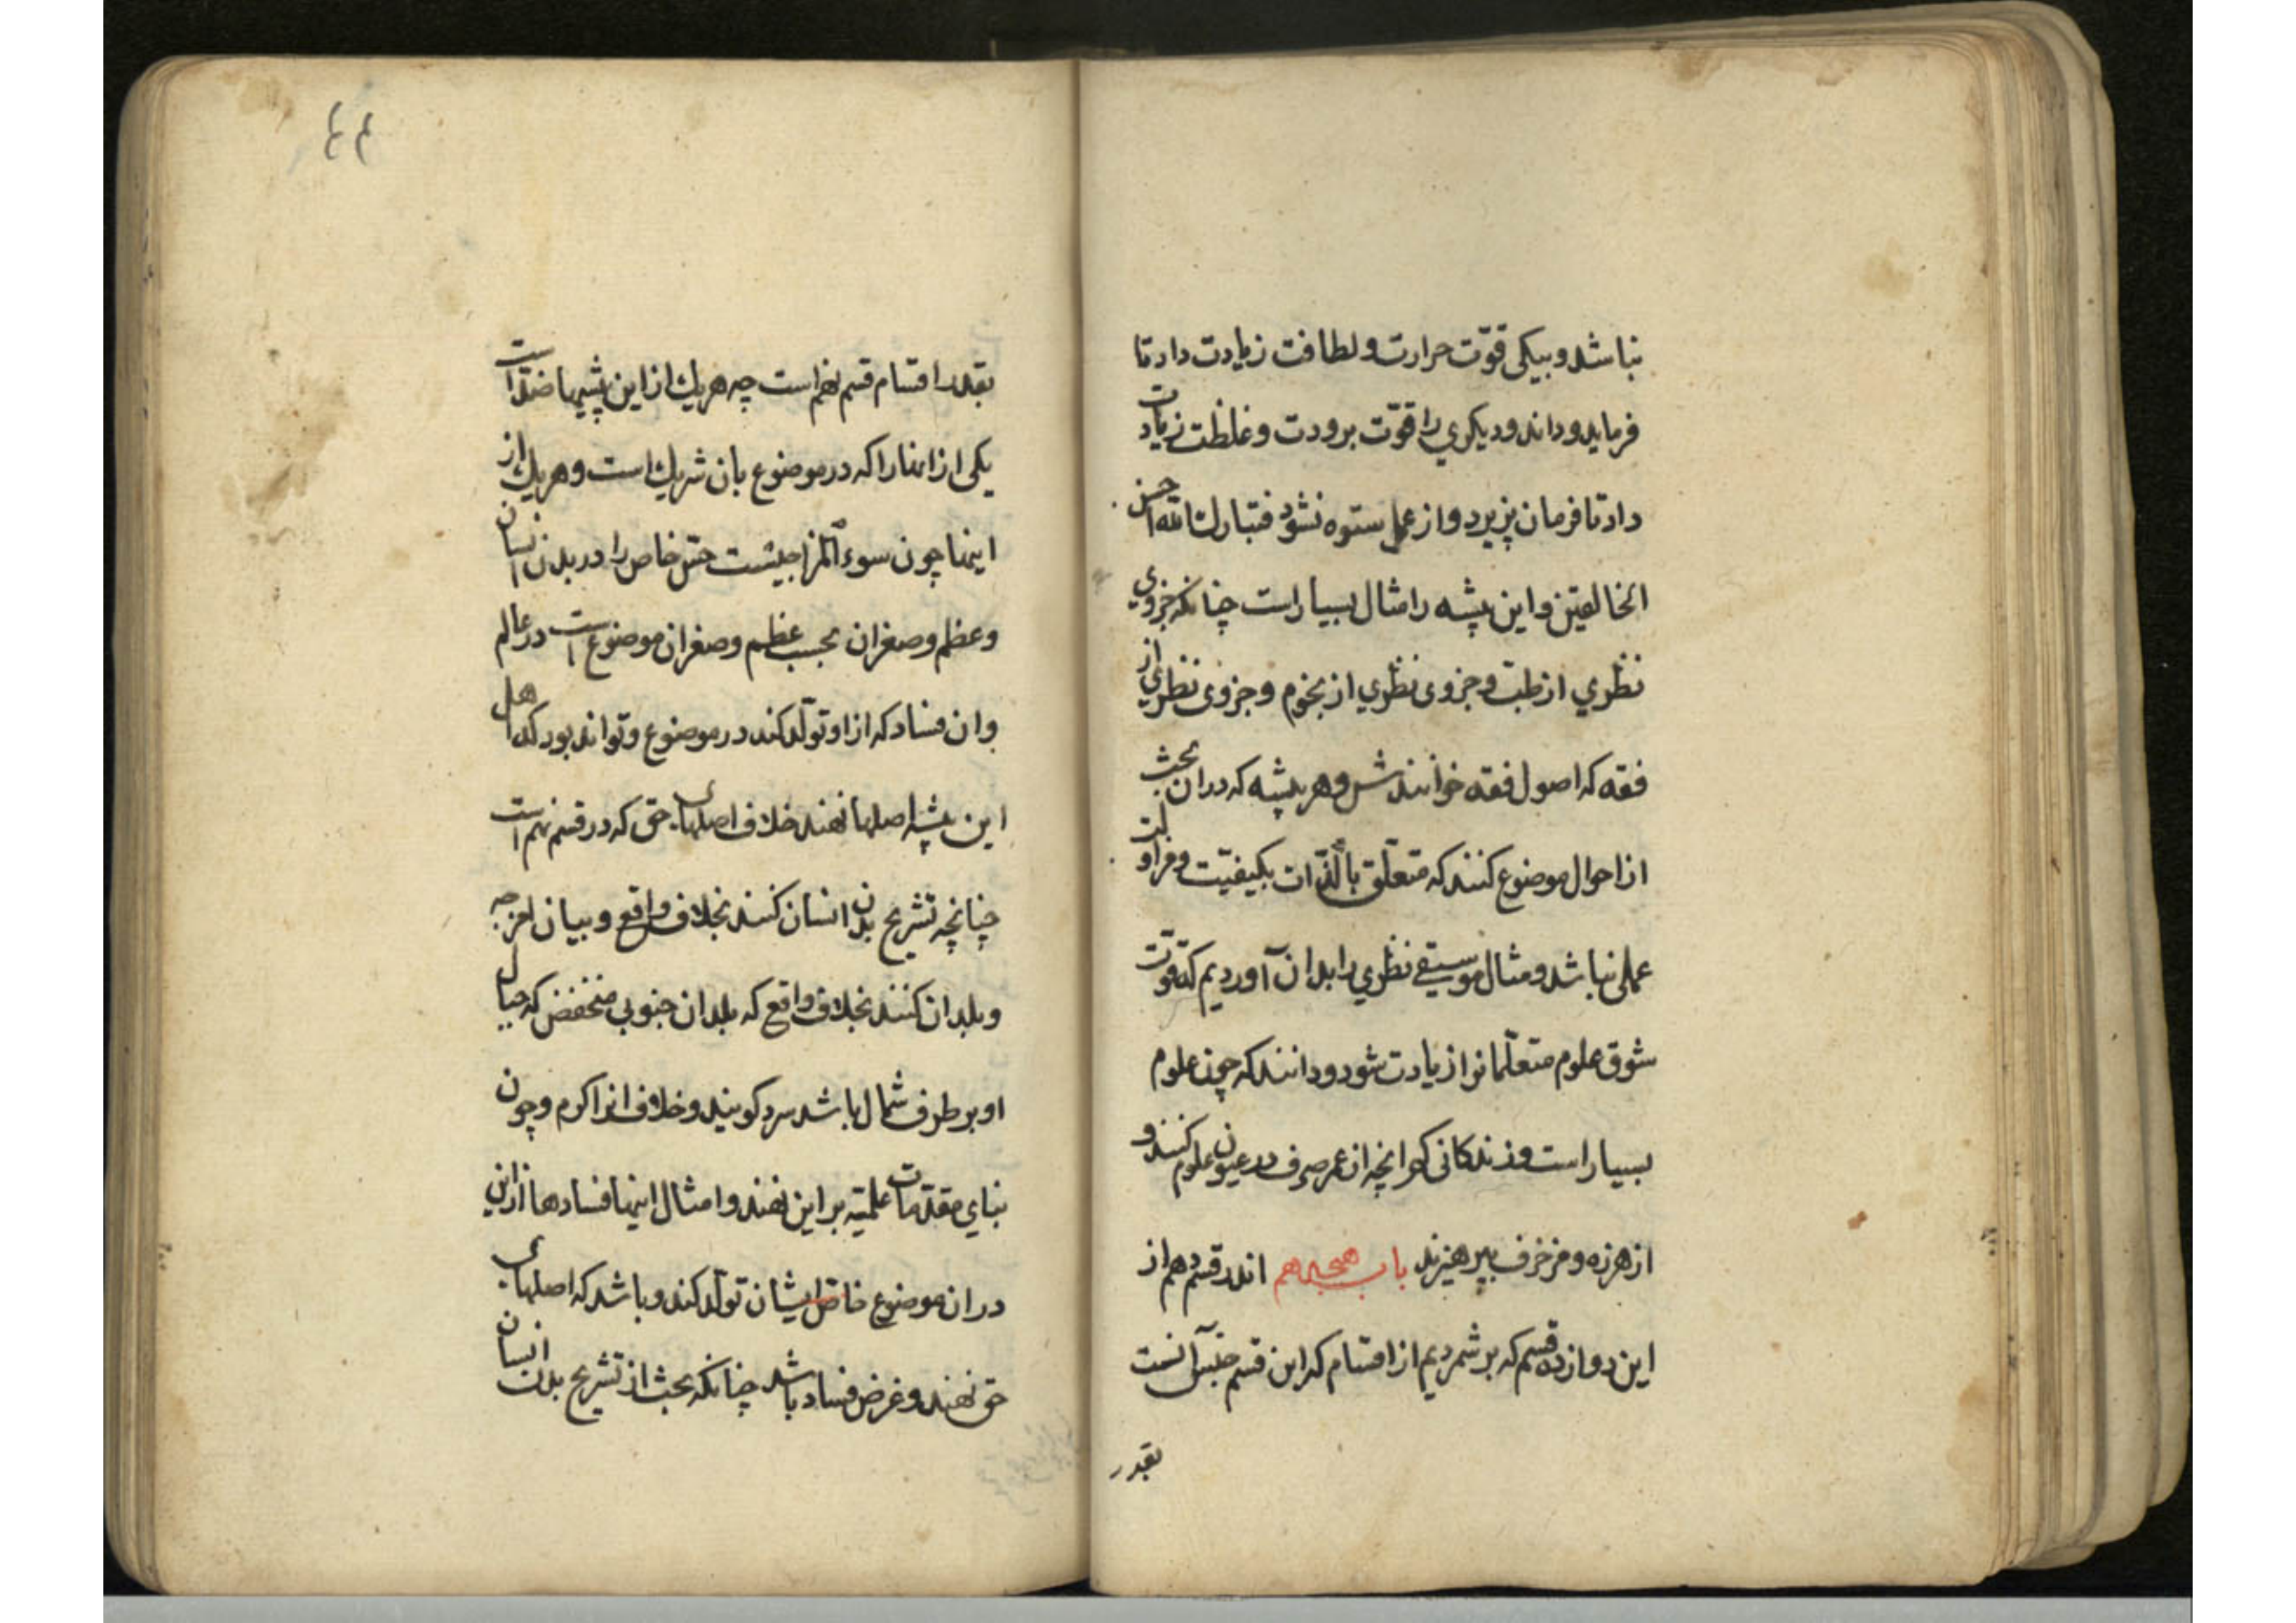 نباشد و بیکی قوّت حرارت و لطافت زیادت داد تا
فرماید و داند و دیکری را قوّت برودت و غلظت زیادت
داد تا فرمان پزیرد و از عمل ستوه نشود فتبارك الله احسن
الخالقین و این پیشه را مثال بسیار است چنانکه جزوی
نظري از طبّ و جزوی نظري از نجوم و جزوی نظري از
فقه که اصول فقه خوانندش و هر پیشه که دران بحث
از احوال موضوع کنند که متعلّق بالذّات بکیفیّت و مزاولت
عملی نباشد و مثال موسیقی نظري را بدان آوردیم که قوّت
شوق علوم متعلّمانرا زیادت شود و دانند که چون علوم
بسیار است و زندکانی انچه از عمر صرف در عیون علوم کنند و
از هرزه و مزخرف بپرهیزند باب هجدهم اندر قسم دهم از
این دوازده قسم که برشمردیم از اقسام که این قسم جنس آنست
بقدر
٤٤
بقدر اقسام قسم نهم است چه هریك از این پیشها ضدّ است
یکی از انها را که در موضوع بان شریك است و هریك از
اینها چون سوء المزاجیست جنس خاص را در بدن انسان
و عظم و صغر ان بحسب عظم و صغر ان موضوع است در عالم
و ان فساد که از او تولّد کند در موضوع و تواند بود که اهل
این پیشه اصلها نهند خلاف اصلهای حق که در قسم نهم است
چنانچه تشریح بدن انسان کنند بخلاف واقع و بیان امزجه
و بلدان کنند بخلاف واقع که بلدان جنوبی منخفض که جبال
او بر طرف شمال باشد سرد کویند و خلاف انرا کرم و چون
بنای مقدّمات علمیّه بر این نهند و امثال اینها فسادها از این
در ان موضوع خاصّ ایشان تولّد کند و باشد که اصلهای
حق نهند و غرض فساد باشد چنانکه بحث از تشریح بدن انسان